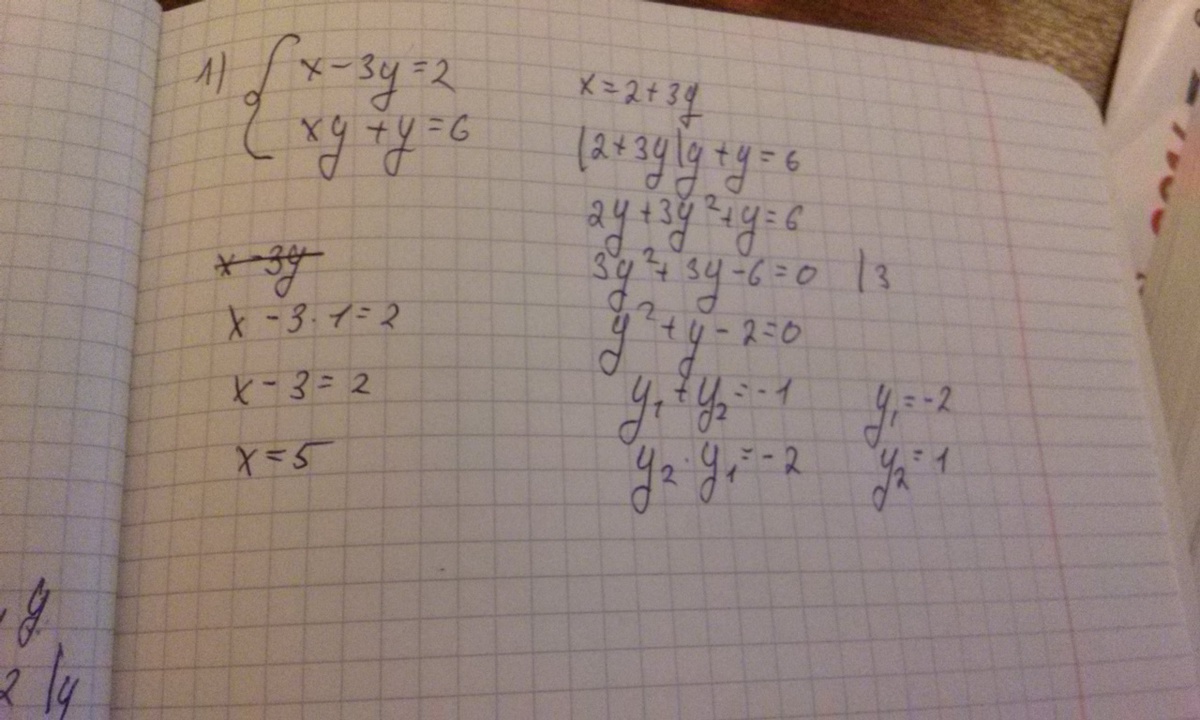 1) { x - 3y = 2
xy + y = 6
x - 3y
x - 3 · 1 = 2
x - 3 = 2
x = 5
x = 2 + 3y
(2 + 3y)y + y = 6
2y + 3y² + y = 6
3y² + 3y - 6 = 0 | 3
y² + y - 2 = 0
y₁ + y₂ = -1 y₁ = -2
y₂ · y₁ = -2 y₂ = 1
y
2 | y